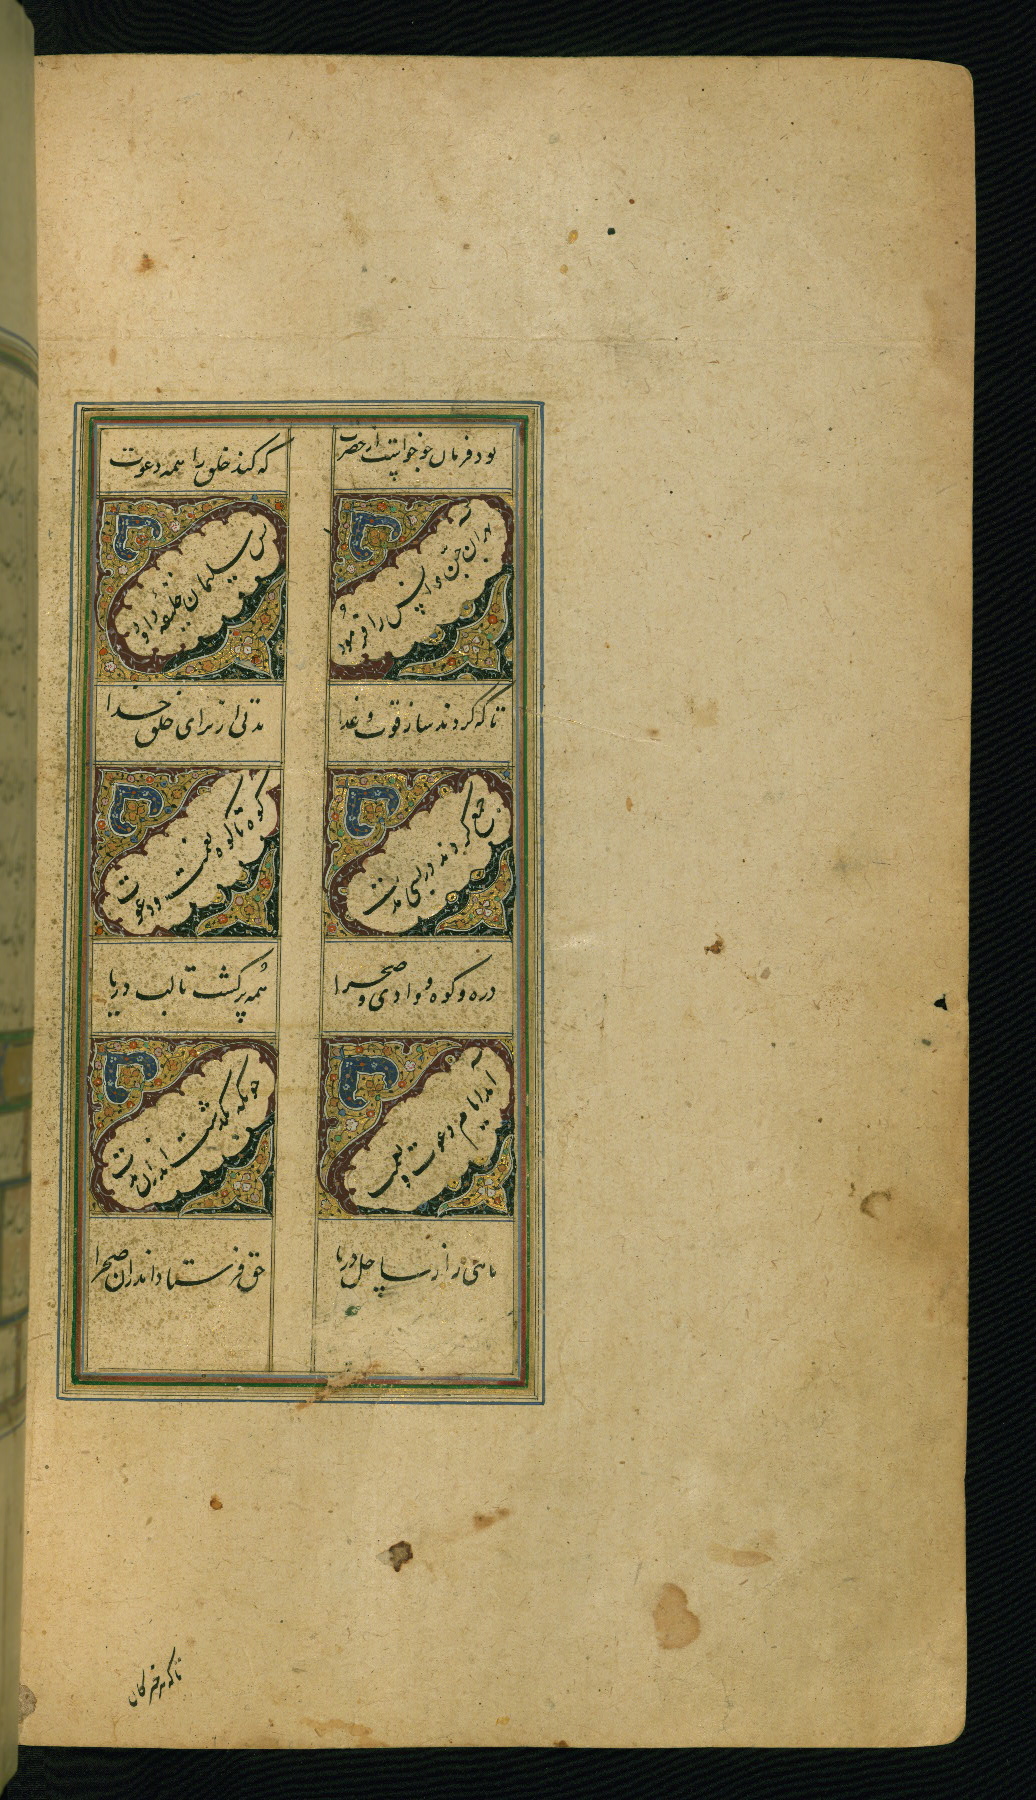 بود فرمان چو خواست از حضرت
که کند خلق را همه دعوت
بهر آن جن و انس را فرمود
پس سلیمان خلیفه داود
تا که کردند ساز قوت و غذا
مدتی از برای خلق خدا
جمع کردند در بسی مدت
کوه تا کوه نعمت و دعوت
دره و کوه و وادی و صحرا
همه پر کشت تا لب دریا
آمد ایام دعوت و نعمت
چونکه بگذشت اندران مدت
ماهی را از ساحل دریا
حق فرستاد اندران صحرا
تا که